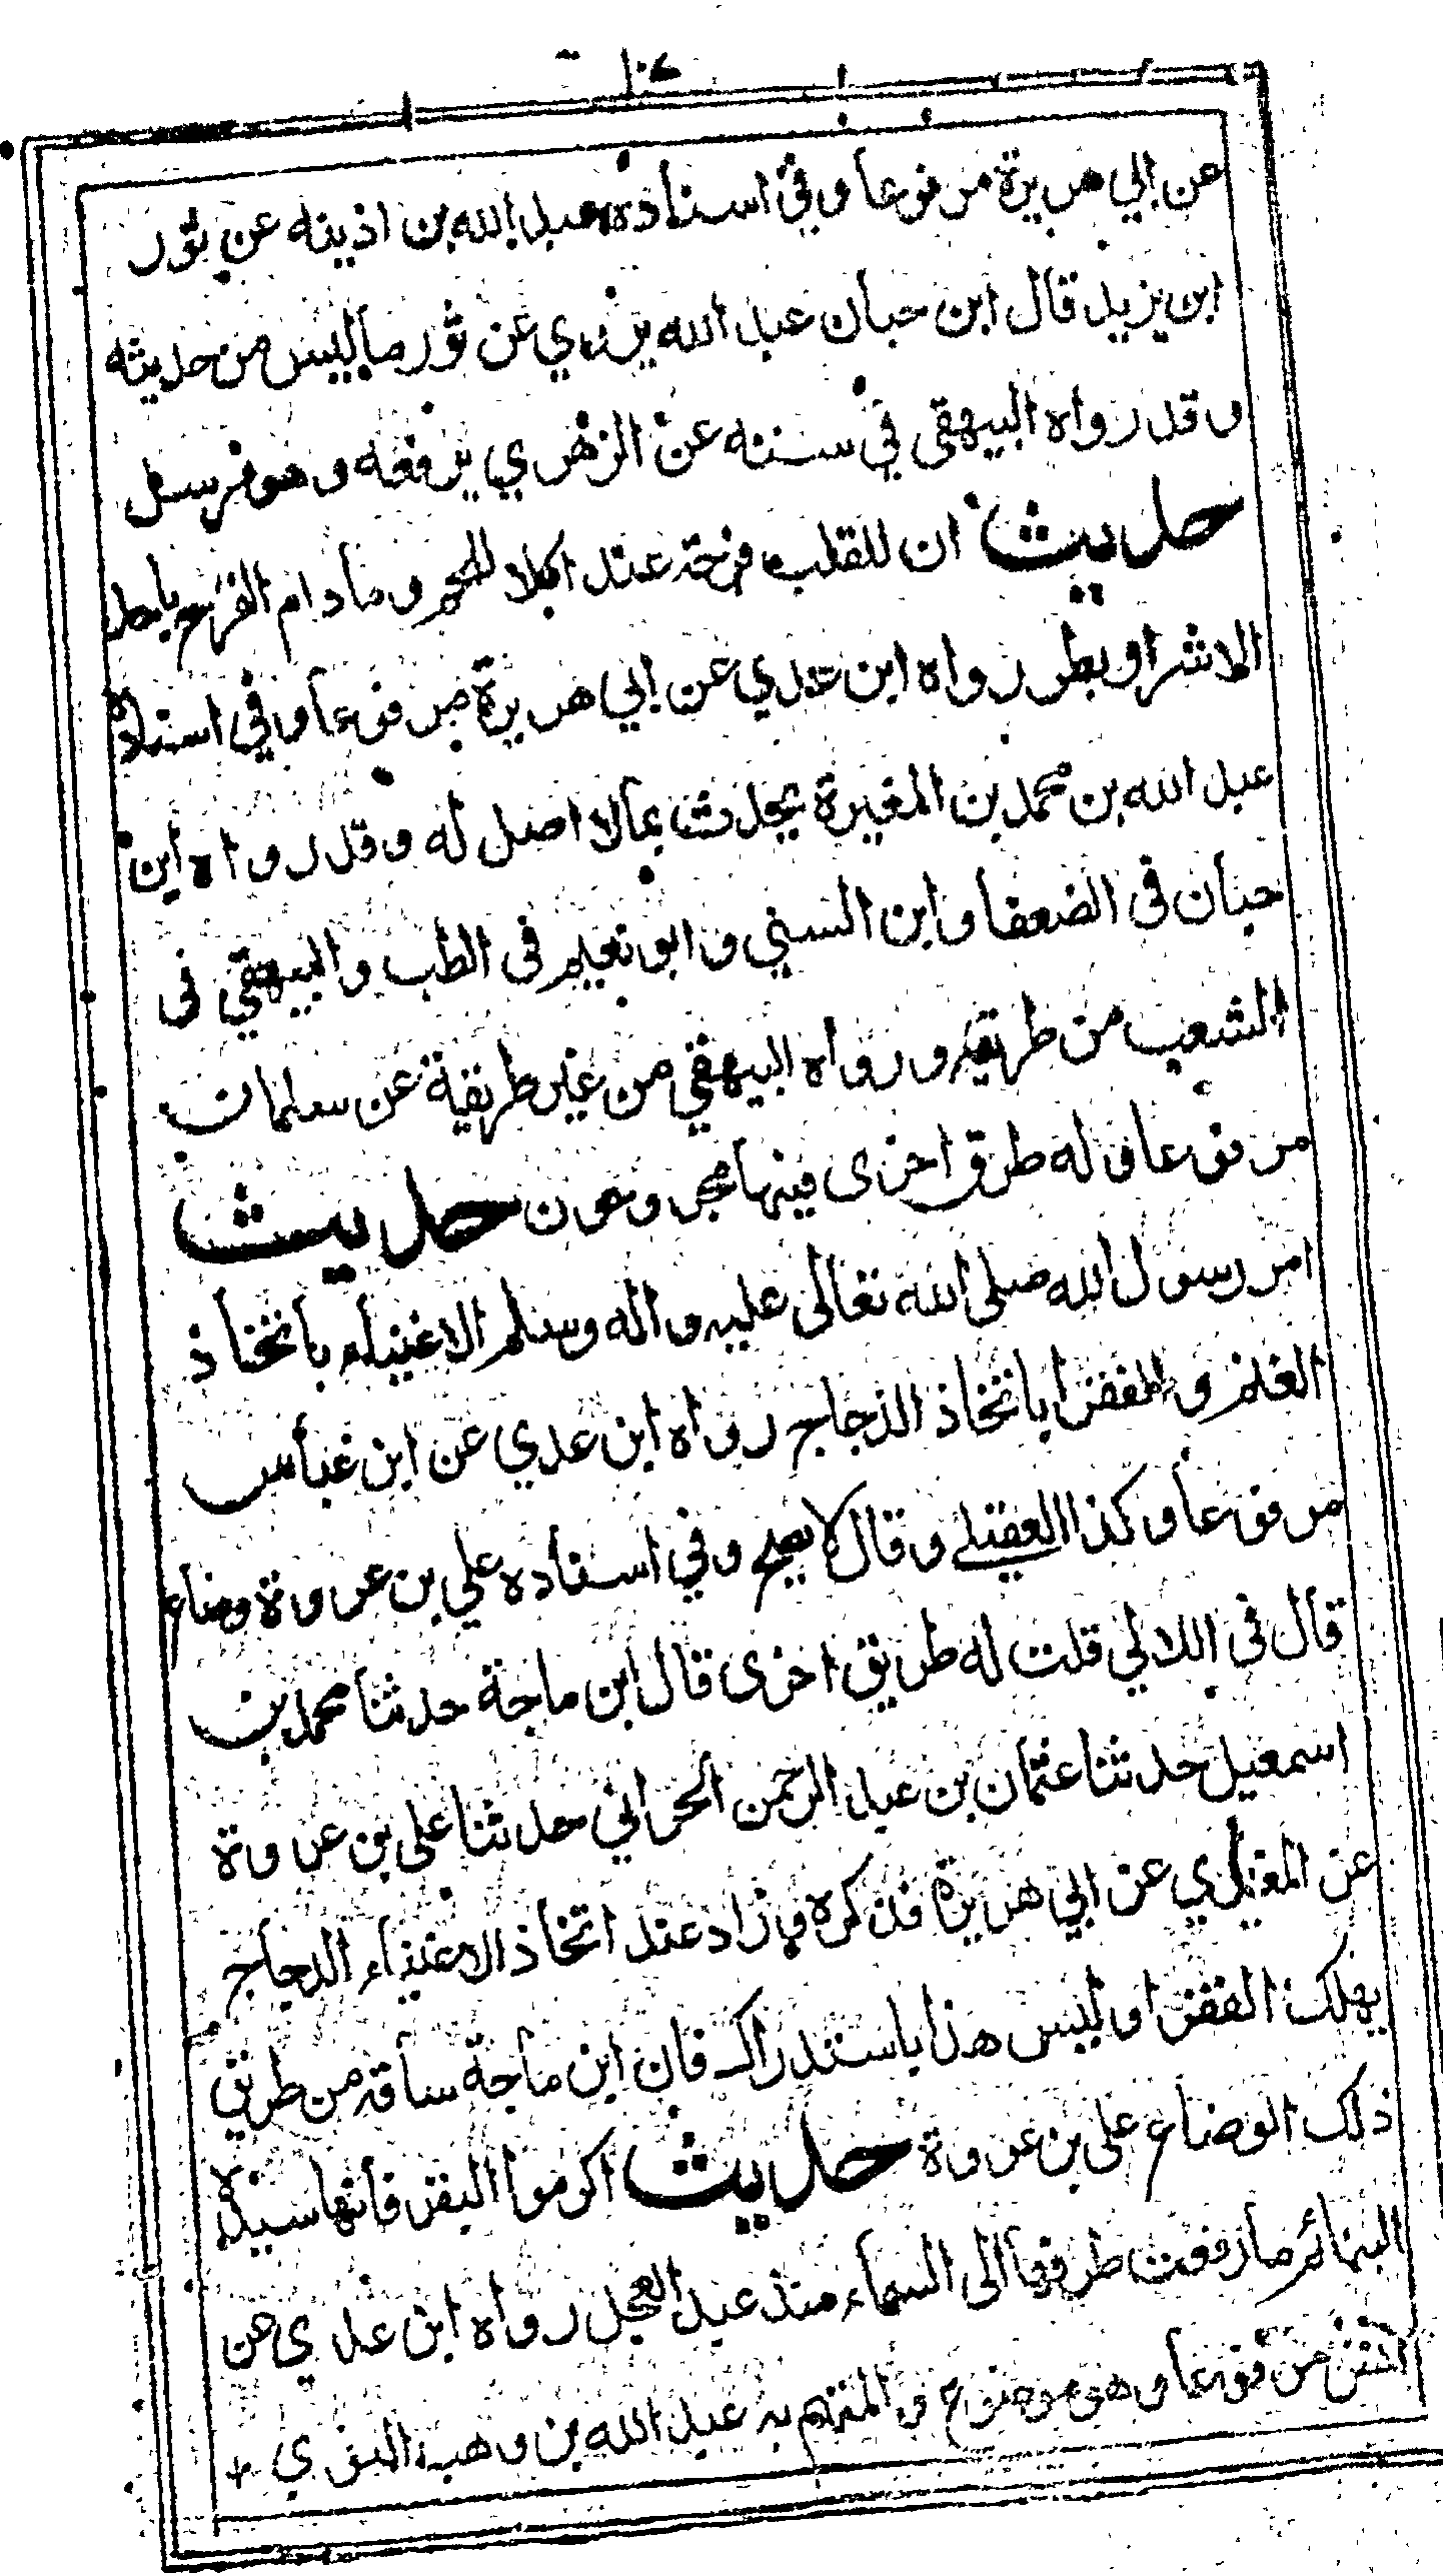 عن ابي هريرة مرفوعا وفي اسناده عبد الله بن اذينه عن ثور
ابن يزيد قال ابن حبان عبد الله يروي عن ثور ما ليس من حديثه
وقد رواه البيهقي في سننه عن الزهري يرفعه وهو مرسل
حديث ان للقلب فرحة عند اكل اللحم وما دام الفرح باحد
الا اشر او بطر رواه ابن عدي عن ابي هريرة مرفوعا وفي اسناده
عبد الله بن محمد بن المغيرة يحدث بما لا اصل له وقد رواه ابن
حبان في الضعفا وابن السني وابو نعيم في الطب والبيهقي في
الشعب من طريقه ورواه البيهقي من غير طريقة عن سلمان
مرفوعا وله طرق اخرى فيها مجروحون حديث
امر رسول الله صلى الله تعالى عليه واله وسلم الاغنياء باتخاذ
الغنم والفقرا باتخاذ الدجاج رواه ابن عدي عن ابن عباس
مرفوعا وكذا العقيلي وقال لا يصح وفي اسناده علي بن عروة وضاع
قال في اللالي قلت له طريق اخرى قال ابن ماجة حدثنا محمد بن
اسمعيل حدثنا عثمان بن عبد الرحمن الحراني حدثنا علي بن عروة
عن المقبري عن ابي هريرة فذكره وزاد عند اتخاذ الاغنياء الدجاج
يهلك الفقرا وليس هذا باستدراك فان ابن ماجة ساقه من طريق
ذلك الوضاع علي بن عروة حديث اكرموا البقر فانها سيدة
البهائم ما رفعت طرفها الى السماء منذ عبد العجل رواه ابن عدي عن
انس مرفوعا وهو موضوع والمتهم به عبد الله بن وهب النسوي